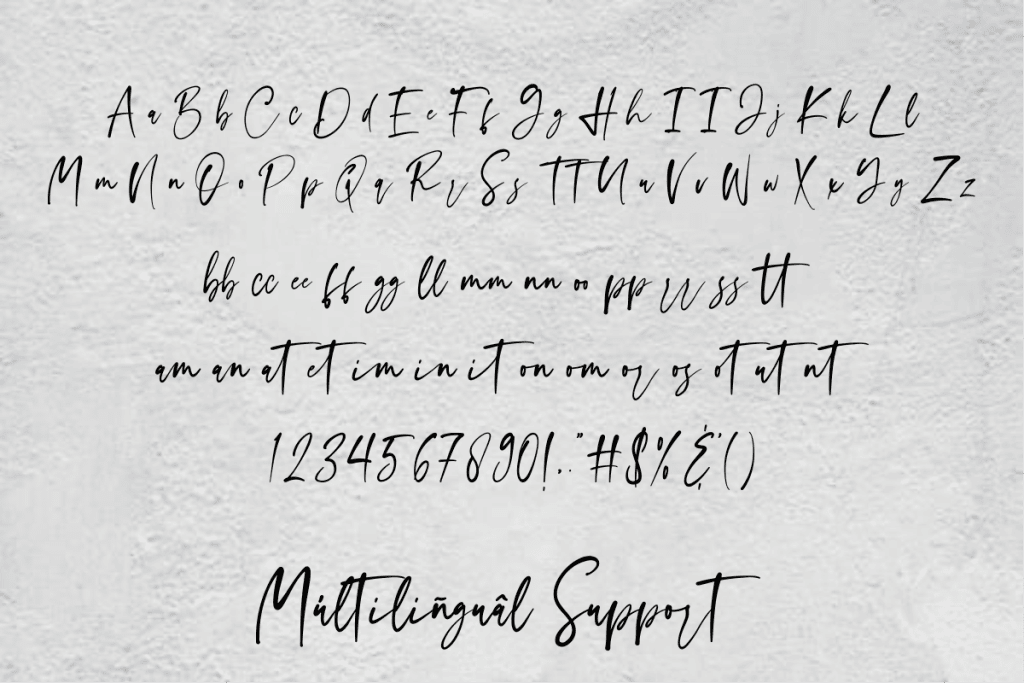 Aa Bb Cc Dd Ee Ff Gg Hh I I Jj Kk Ll
Mm Nn Oo Pp Qq Rr Ss TT Uu Vv Ww Xx Yy Zz
bb cc ee ff gg ll mm nn oo pp rr ss tt
am an at et im in it on om or os ot ut nt
1234567890!.,"#$%&'()
Múltiliñguâl Support